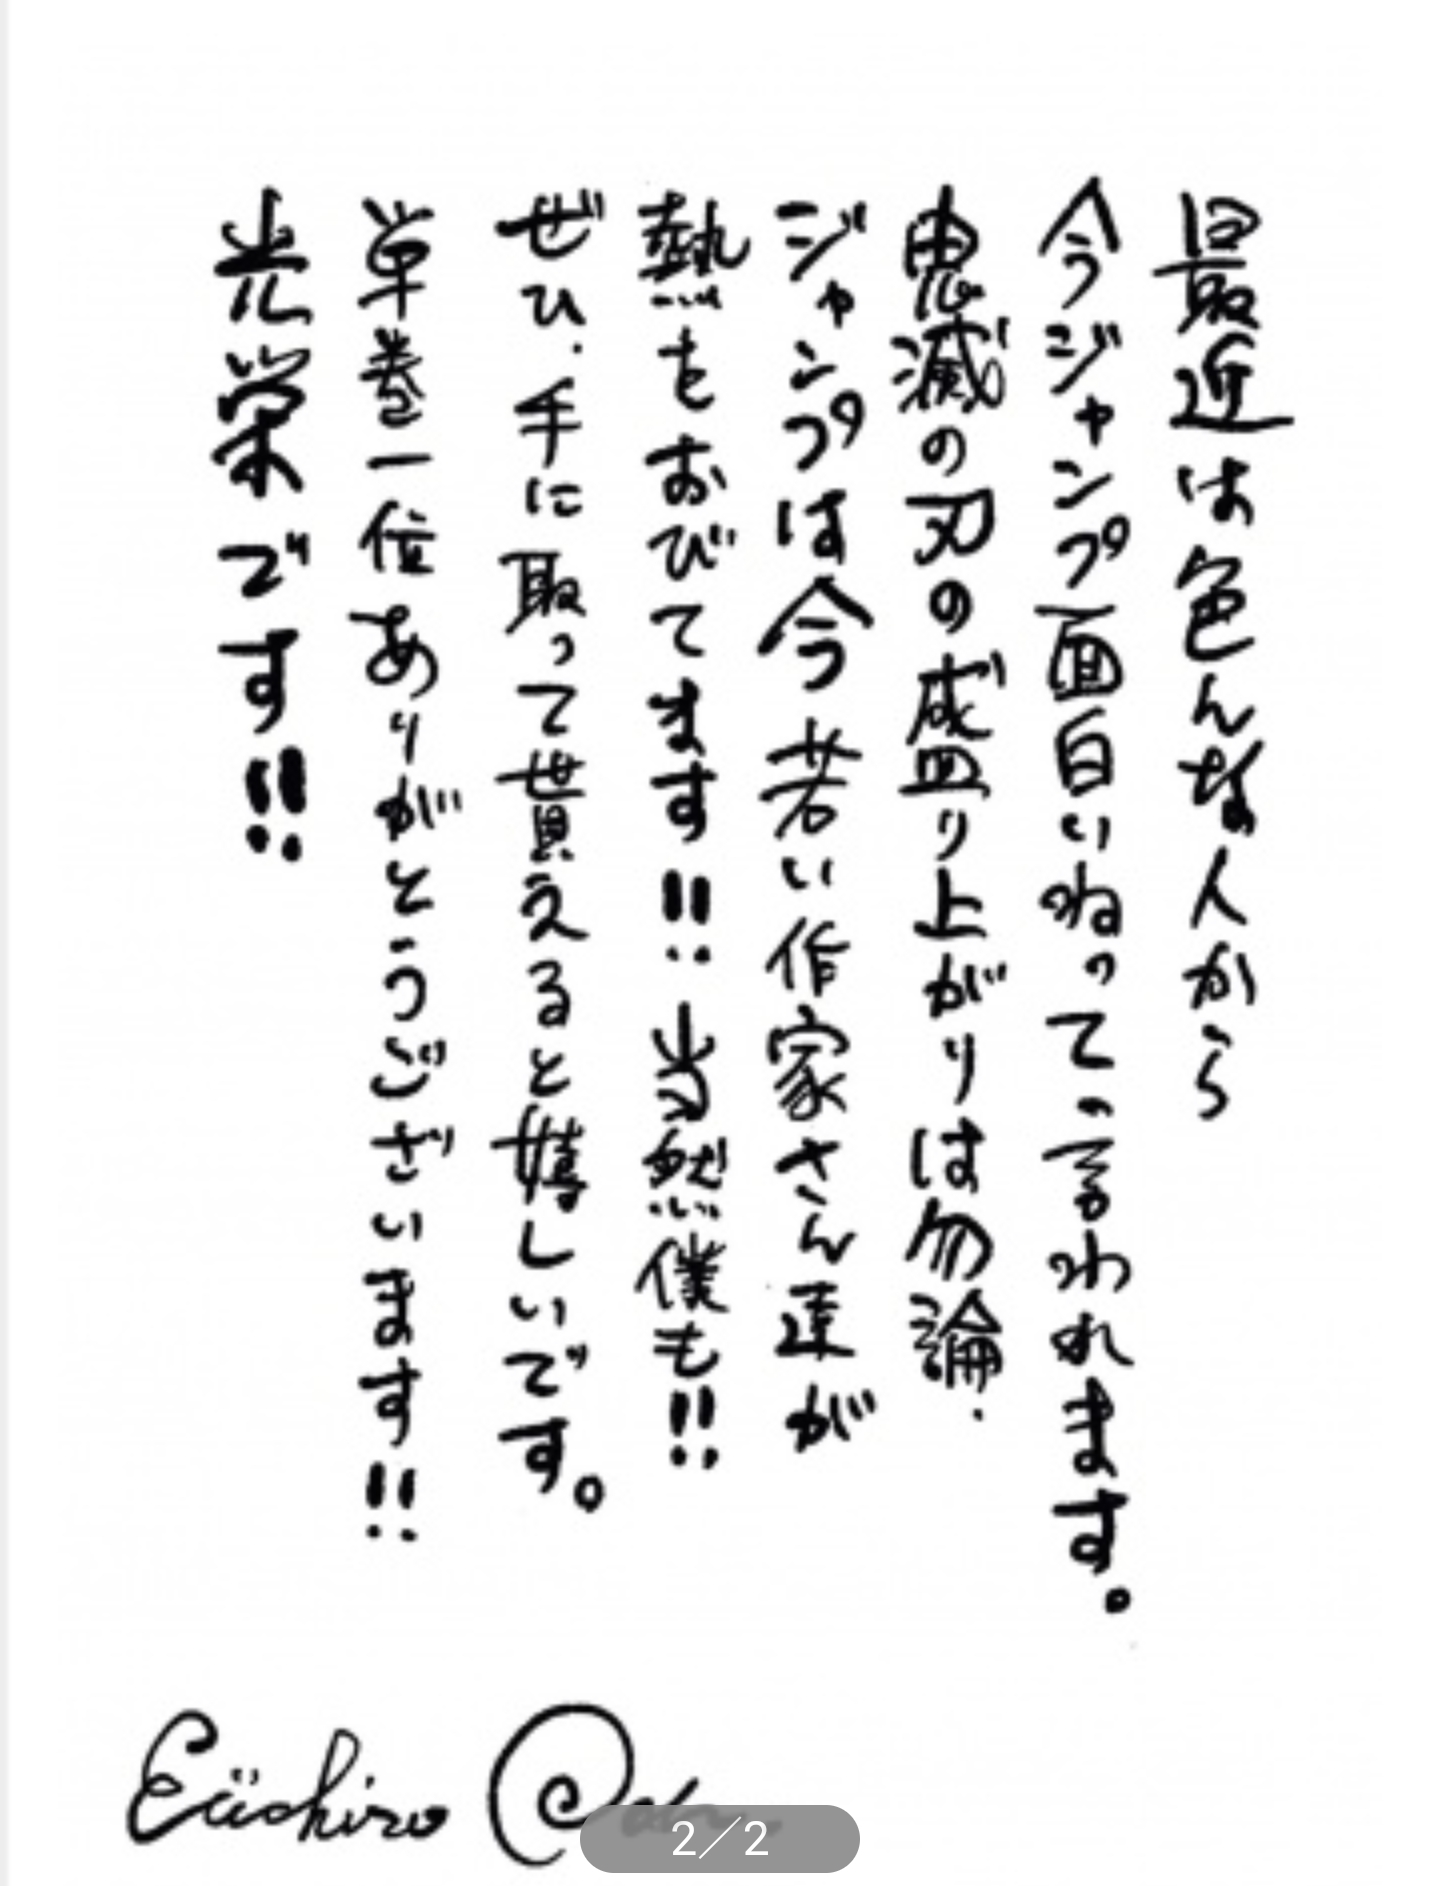 最近は色んな人から
今ジャンプ面白いねってっ言われます。
鬼滅の刃の盛り上がりは勿論.
ジャンプは今若い作家さん達が
熱をおびてます!! 当然僕も!!
ぜひ.手に取って貰えると嬉しいです。
単巻一位ありがとうございます!!
光栄です!!
Eiichiro Oda
2/2